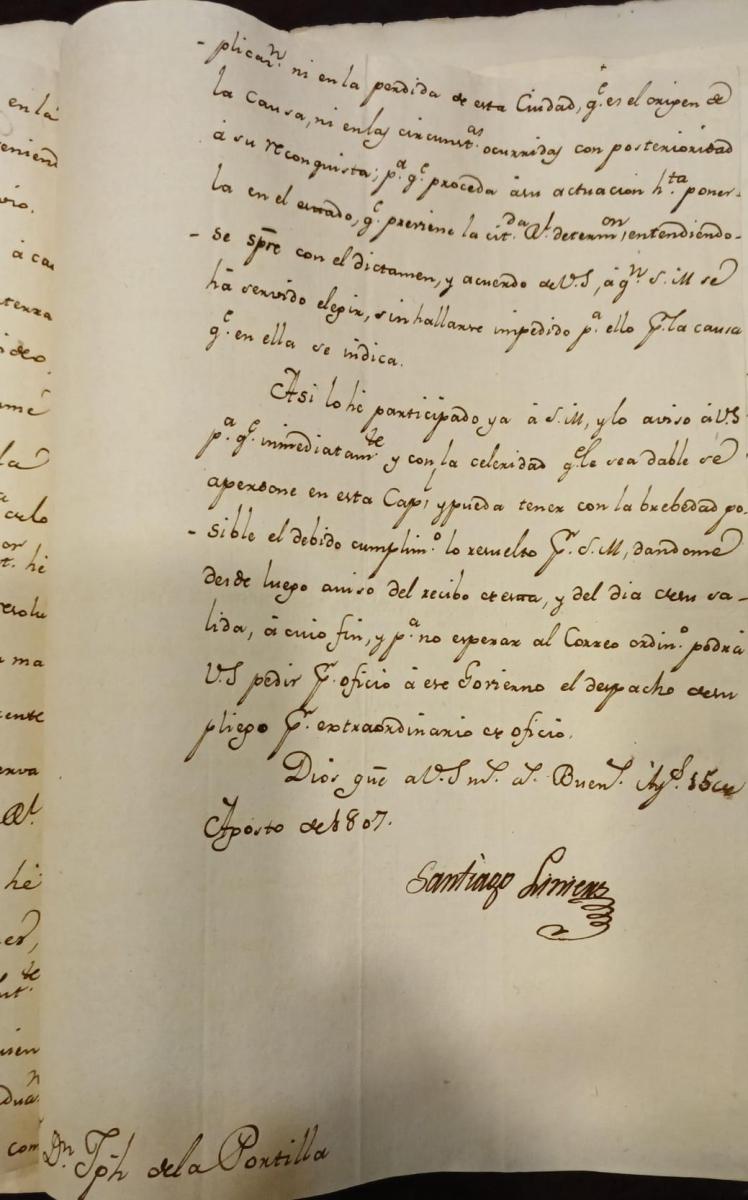 en la
- plicar.n ni en la perdida de esta Ciudad, q.e es el origen de
la Causa, ni en las circunst.as ocurridas con posterioridad
á su reconquista; p.a q.e proceda á su actuacion h.ta poner-
la en el estado, q.e previene la cit.da Rl. determ.on, entendiendo-
- se spre con el dictamen, y acuerdo de V.S, á q.n S. M se
há servido elegir, sin hallarse impedido p.a ello p.r la causa
q.e en ella se indica.
Asi lo hé participado ya á S. M, y lo aviso á V.S
p.a q.e inmediatam.te y con la celeridad q.e le sea dable se
apersone en esta Cap.l y pueda tener con la brebedad po-
- sible el debido cumplim.o lo resuelto p.r S. M, dandome
desde luego aviso del recibo de esta, y del dia de su sa-
lida, á cuio fin, y p.a no esperar al Correo ordin.o podrá
V.S pedir p.r oficio á ese Govierno el despacho de su
pliego p.r extraordinario de oficio.
Dios gue a V.S m.s a.s Buen.s Ay.s 15 de
Agosto de 1807.
Santiago Liniers
D.n Jph de la Portilla